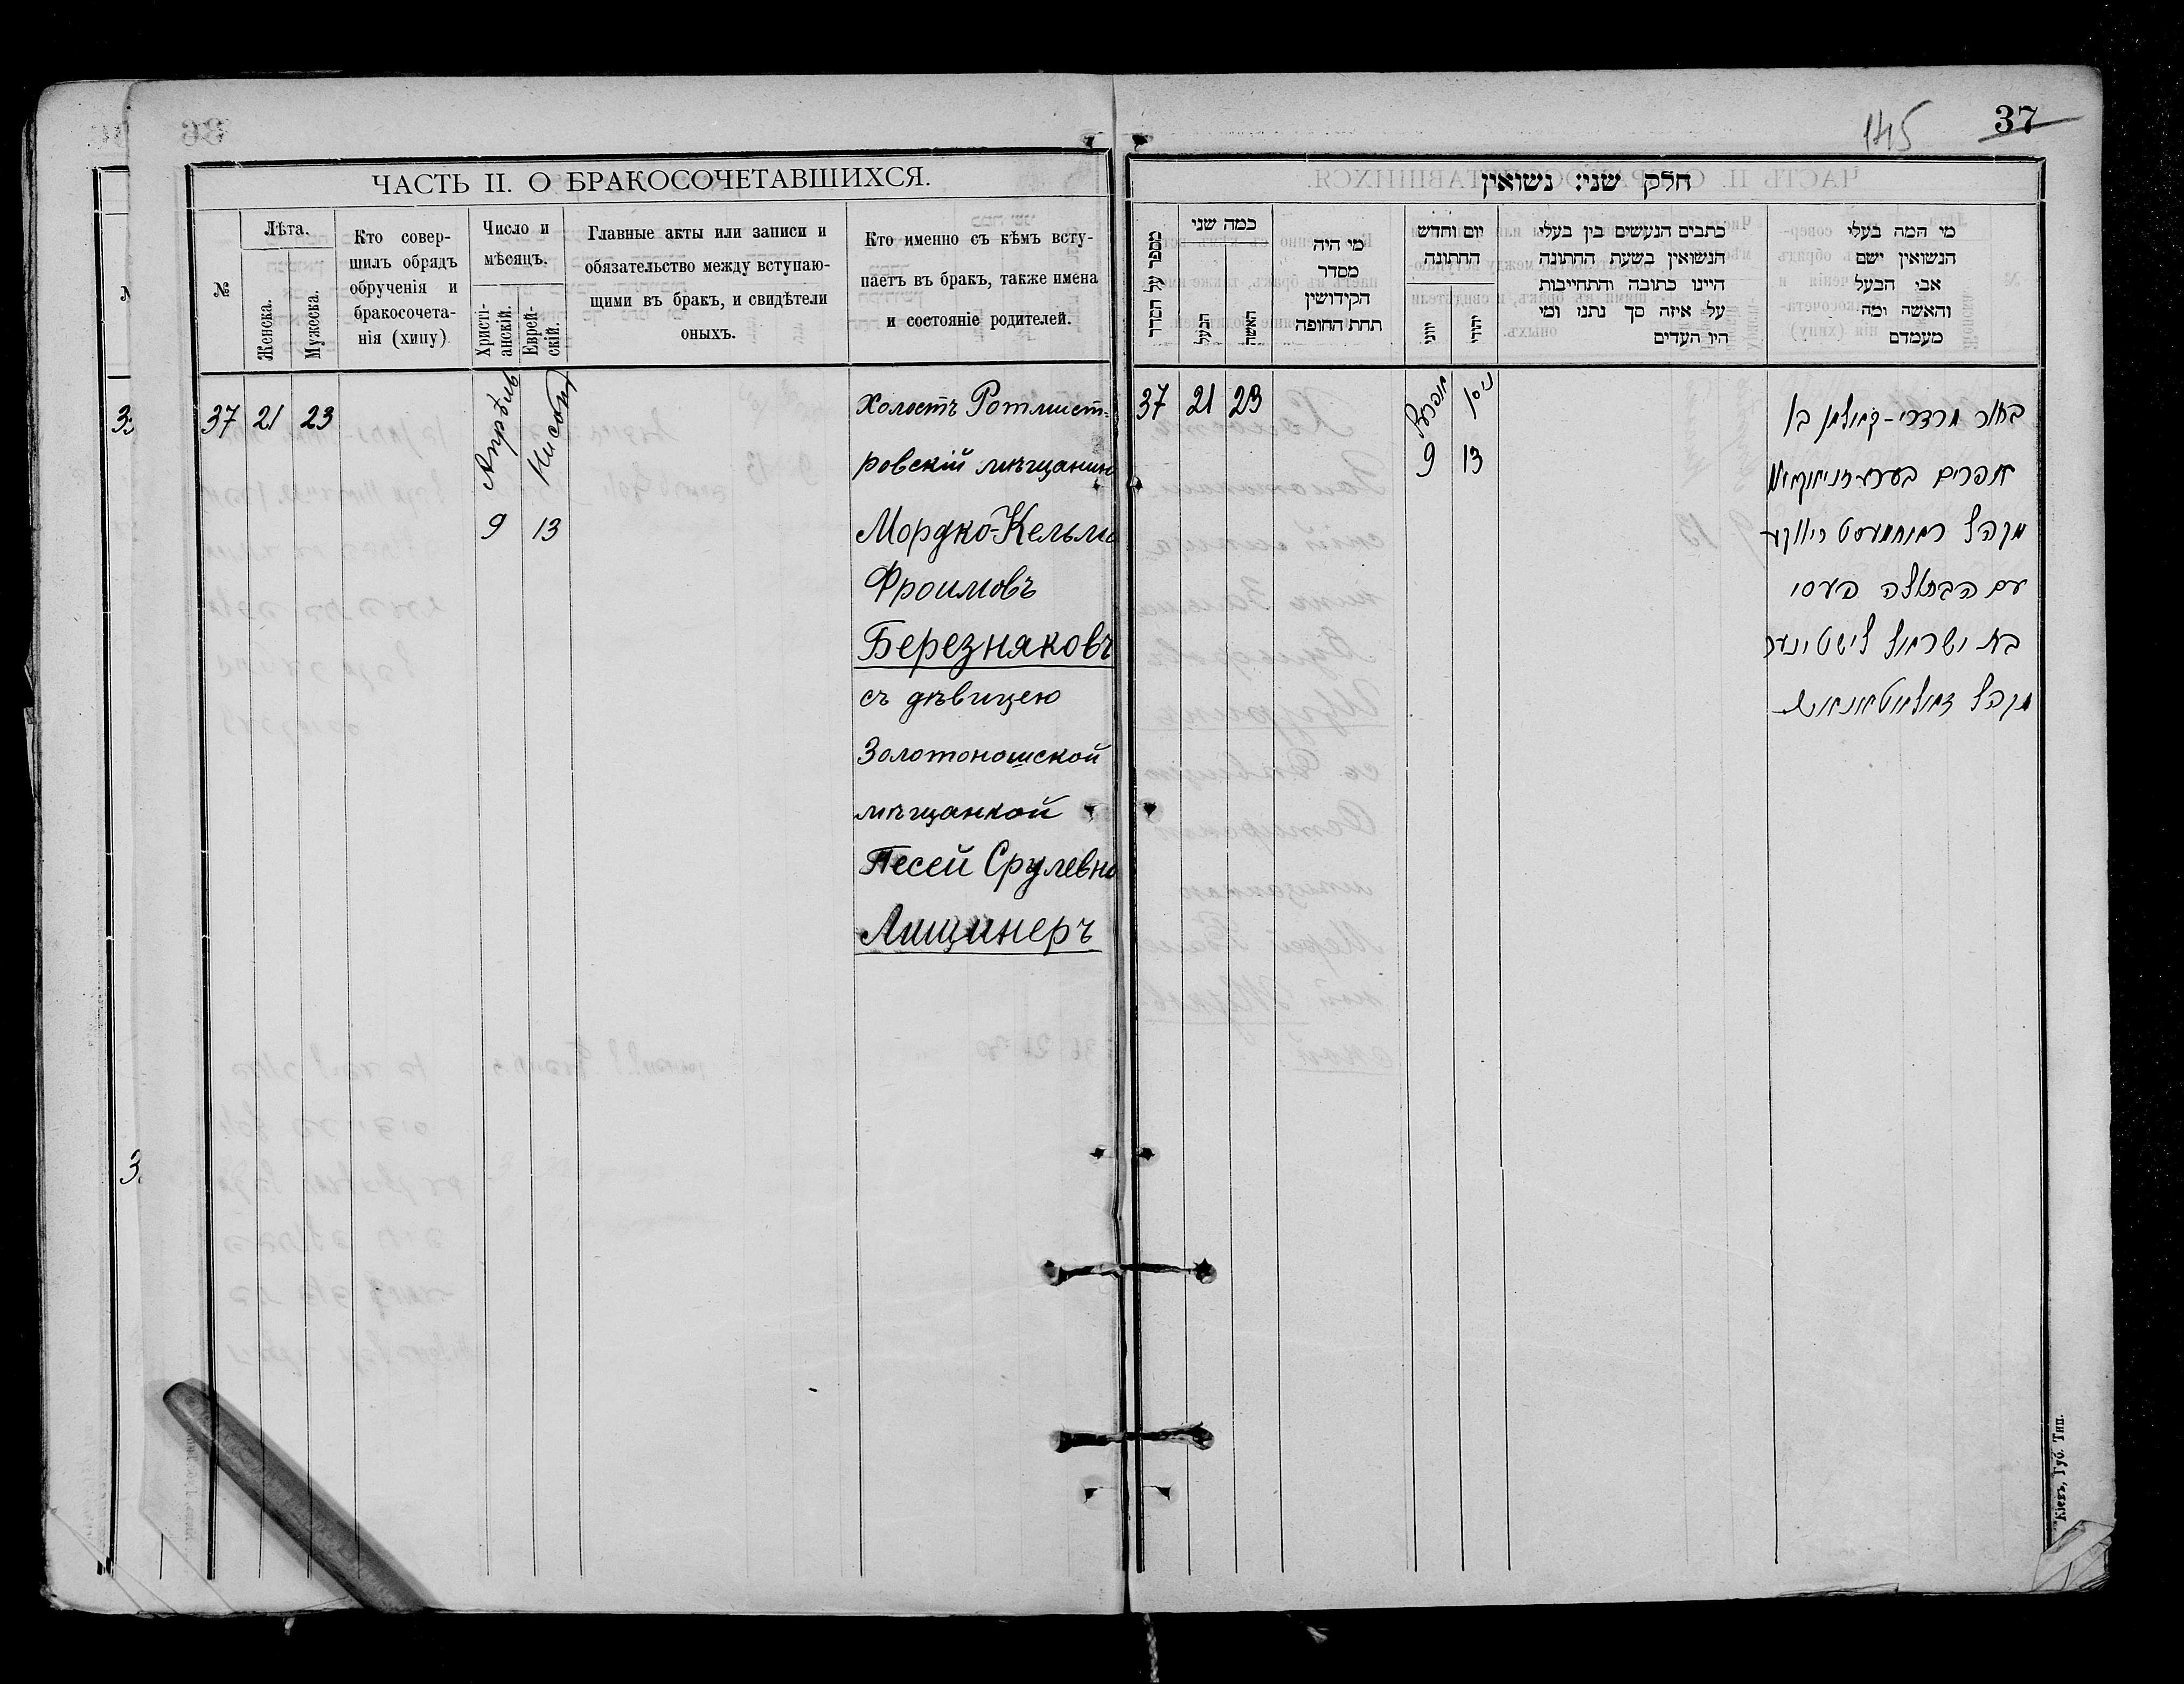 ЧАСТЬ II. О БРАКОСОЧЕТАВШИХСЯ.
№
Лѣта.
Женска.
Мужеска.
Кто совер-
шилъ обрядъ
обрученія и
бракосочета-
нія (хипу)
Число и
мѣсяцъ.
Христі-
анскій.
Еврей-
скій.
Главные акты или записи и
обязательство между вступаю-
щими въ бракъ, и свидѣтели
оныхъ.
Кто именно съ кѣмъ всту-
паетъ въ бракъ, также имена
и состояніе родителей.
37 21 23
Апрѣль
9
Нисанъ
13
Холостъ Ротмист-
ровскій мѣщанин
Мордко-Кельм
Фроимовъ
Березняковъ
съ дѣвицею
Золотоношской
мѣщанкой
Песей Срулевно
Лищинеръ
145
37
חלק שני: נשואין
מספר על הסדר
כמה שני
הבעל
האשה
מי היה
מסדר
הקידושין
תחת החופה
יום וחדש
החתונה
יוני
יהודי
כתבים הנעשים בין בעלי
הנשואין בשעת החתונה
היינו כתובה והתחייבות
על איזה סך נתנו ומי
היו העדים
מי המה בעלי
הנשואין ושם
אבי הבעל
והאשה ומה
מעמדם
37 21 23
אפרעל
9
ניסן
13
בחור מרדכי- קאלמן בן
אפרים בערעזניאקאוו
מקהל ראטמעסטריווקע
עם הבתולה פעסי
בת ישראל לישטינער
מקהל זאלאטאנאש
Кіевъ, Губ. Тип.